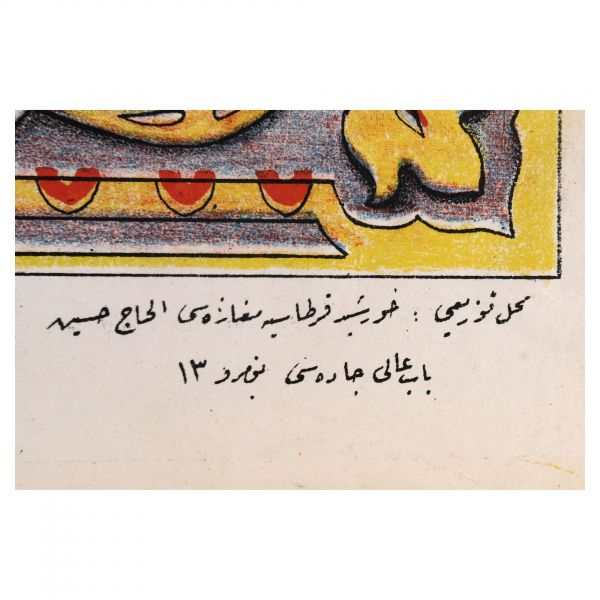 محل توزیعی : خورشید قرطاسیه مغازه‌سی الحاج حسین
باب عالی جاده‌سی نومرو ۱۳